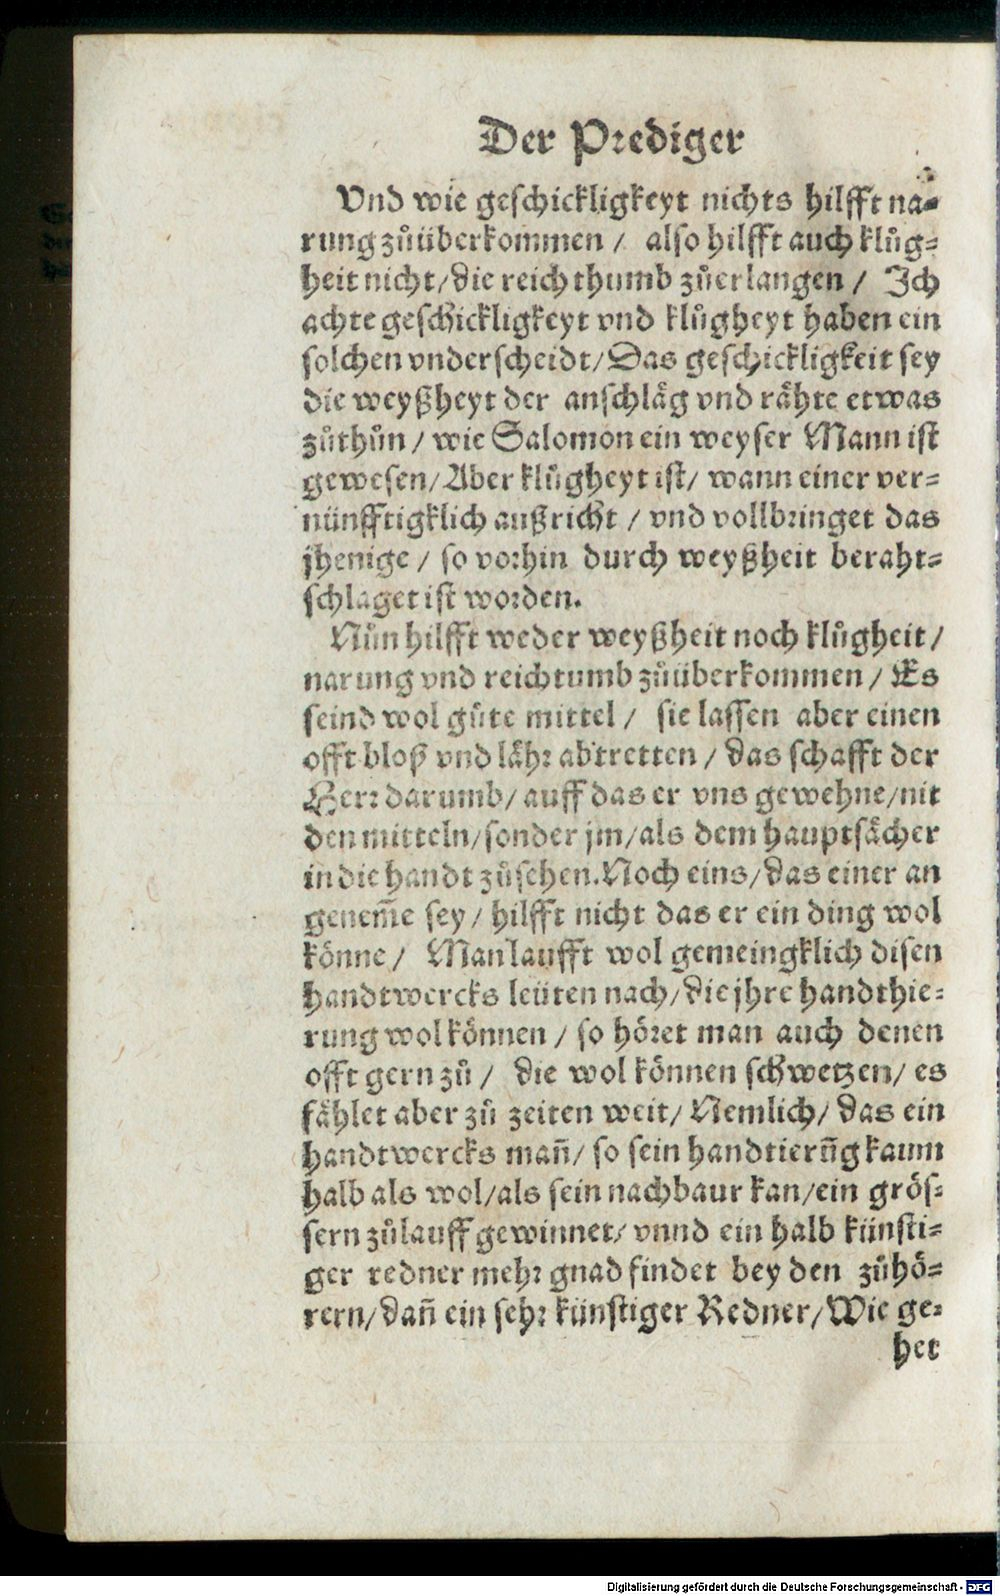 Der Prediger
Vnd wie geschickligkeyt nichts hilfft na-
rung zůüberkommen / also hilfft auch klůg-
heit nicht/die reichthumb zůerlangen / Ich
achte geschickligkeyt vnd klůgheyt haben ein
solchen vnderscheidt/Das geschickligkeit sey
die weyßheyt der anschläg vnd rähte etwas
zůthůn / wie Salomon ein weyser Mann ist
gewesen/Aber klůgheyt ist/ wann einer ver-
nünfftigklich außricht / vnd vollbringet das
jhenige / so vorhin durch weyßheit beraht-
schlaget ist worden.
Nůn hilfft weder weyßheit noch klůgheit/
narung vnd reichtumb zůüberkommen / Es
seind wol gůte mittel / sie lassen aber einen
offt bloß vnd lähr abtretten / das schafft der
Herr darumb/ auff das er vns gewehne/nit
den mitteln/sonder jm/als dem hauptsächer
in die handt zůsehen. Noch eins/das einer an
genem̃e sey / hilfft nicht das er ein ding wol
könne / Man laufft wol gemeingklich disen
handtwercks leüten nach/die jhre handthie-
rung wol können / so höret man auch denen
offt gern zů / die wol können schwetzen/ es
fählet aber zů zeiten weit/ Nemlich/ das ein
handtwercks mañ/ so sein handtierũg kaum
halb als wol/als sein nachbaur kan/ein grös-
sern zůlauff gewinnet/ vnnd ein halb künsti-
ger redner mehr gnad findet bey den zůhö-
rern/dañ ein sehr künstiger Redner/Wie ge-
het
Digitalisierung gefördert durch die Deutsche Forschungsgemeinschaft - DFG